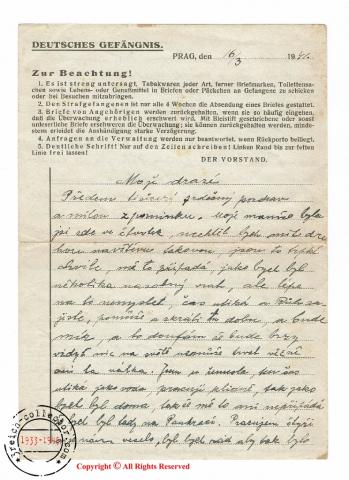 DEUTSCHES GEFÄNGNIS.
PRAG, den 16/3 194
Zur Beachtung!
1. Es ist streng untersagt, Tabakwaren jeder Art, ferner Briefmarken, Toilettensachen sowie Lebens- oder Genußmittel in Briefen oder Päckchen an Gefangene zu schicken
oder bei Besuchen mitzubringen.
2. Den Strafgefangenen ist nur alle 4 Wochen die Absendung eines Briefes gestattet.
3. Briefe von Angehörigen werden zurückgehalten, wenn sie so häufig eingehen,
daß die Überwachung erheblich erschwert wird. Mit Bleistift geschriebene oder sonst
unleserliche Briefe erschweren die Überwachung; sie können zurückgehalten werden, mindestens
erleidet die Aushändigung starke Verzögerung.
4. Anfragen an die Verwaltung werden nur beantwortet, wenn Rückporto beiliegt.
5. Deutliche Schrift! Nur auf den Zeilen schreiben! Linken Rand bis zur fetten
Linie frei lassen!
DER VORSTAND.
Moji drazí
Předem srdečný pozdrav
a milou vzpomínku. Moje maminko byla
jsi zde ve čtvrtek, nechtěl bych míti
návštěvu takovou, jsou to trpké
chvíle, mě to připadá, jako bych byl
několika násobný vrah, ale lépe
na to nemyslet, čas utíká a Bůh
pomůže a zkrátí tu dobu, a bude
mír, a to doufám že bude brzy
vždyť nic na světě nemůže trvat věčně
ani ta válka. Jsem u řemesla, ten čas
utíká jako voda, pracuji pilně, tak jako
bych byl doma, tak že mě to ani nepřipadá
že bych byl tady na Pankráci. Pracujem čtyři
je nám veselo, byl bych rád aby tak bylo
jreich-collector.com
1933-1945
Copyright © All Rights Reserved